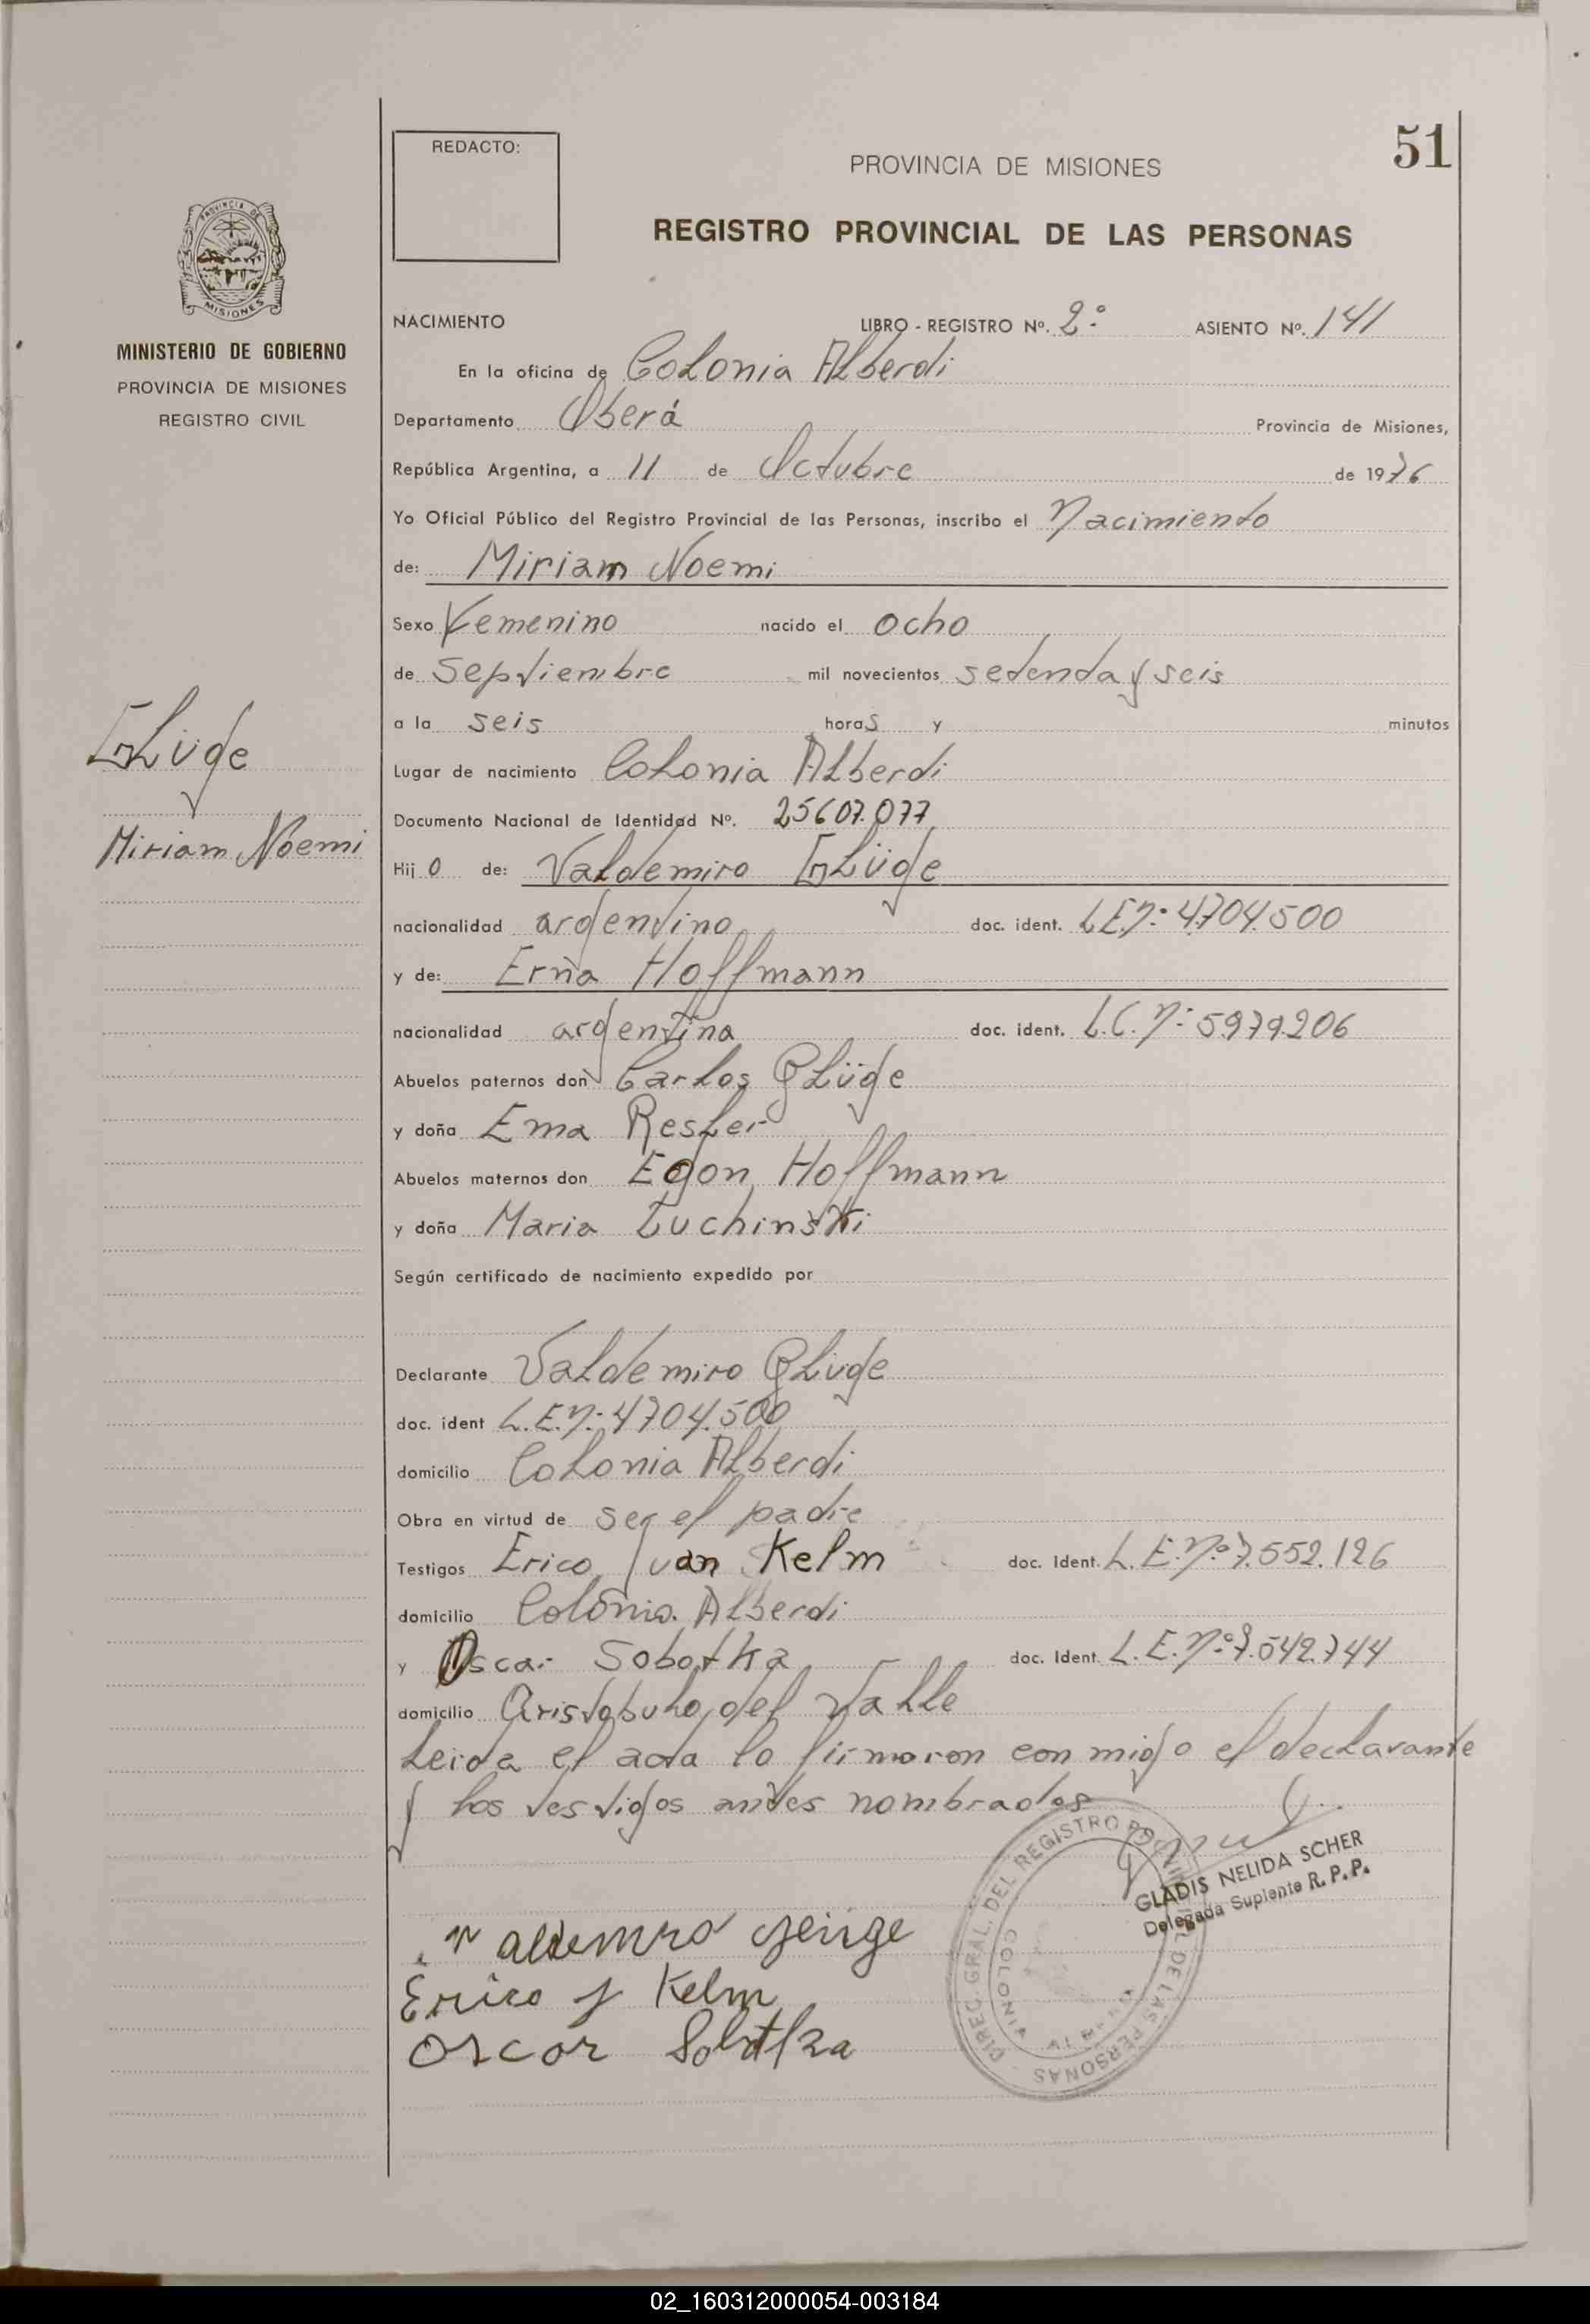 51
REDACTO:
PROVINCIA DE MISIONES
REGISTRO PROVINCIAL DE LAS PERSONAS
PROVINCIA DE
MISIONES
MINISTERIO DE GOBIERNO
PROVINCIA DE MISIONES
REGISTRO CIVIL
Glüge
Miriam Noemi
NACIMIENTO LIBRO - REGISTRO Nº. 2º ASIENTO Nº. 141
En la oficina de Colonia Alberdi
Departamento Oberá Provincia de Misiones,
República Argentina, a 11 de Octubre de 1976
Yo Oficial Público del Registro Provincial de las Personas, inscribo el Nacimiento
de: Miriam Noemi
Sexo Femenino nacido el ocho
de Septiembre mil novecientos setenta y seis
a la seis horas y minutos
Lugar de nacimiento Colonia Alberdi
Documento Nacional de Identidad Nº. 25607.077
Hij o de: Valdemiro Glüge
nacionalidad argentino doc. ident. L.E.Nº 4.704.500
y de: Erna Hoffmann
nacionalidad argentina doc. ident. L.C.Nº 5.979.206
Abuelos paternos don Carlos Glüge
y doña Ema Resler
Abuelos maternos don Egon Hoffmann
y doña Maria Luchinski
Según certificado de nacimiento expedido por
Declarante Valdemiro Glüge
doc. ident L.E.Nº 4704.500
domicilio Colonia Alberdi
Obra en virtud de ser el padre
Testigos Erico Ivan Kelm doc. Ident. L.E.Nº 7.552.126
domicilio Colonia Alberdi
y Oscar Sobotka doc. Ident. L.E.Nº 7.542.744
domicilio Aristobulo del Valle
Leida el acta lo firmaron con migo el declarante
y los testigos antes nombrados
GLADIS NELIDA SCHER
Delegada Suplente R.P.P.
DIREC. GRAL. DEL REGISTRO PROVINCIAL DE LAS PERSONAS
COLONIA
Valdemiro Glüge
Erico J Kelm
Oscar Sobotka
02_160312000054-003184